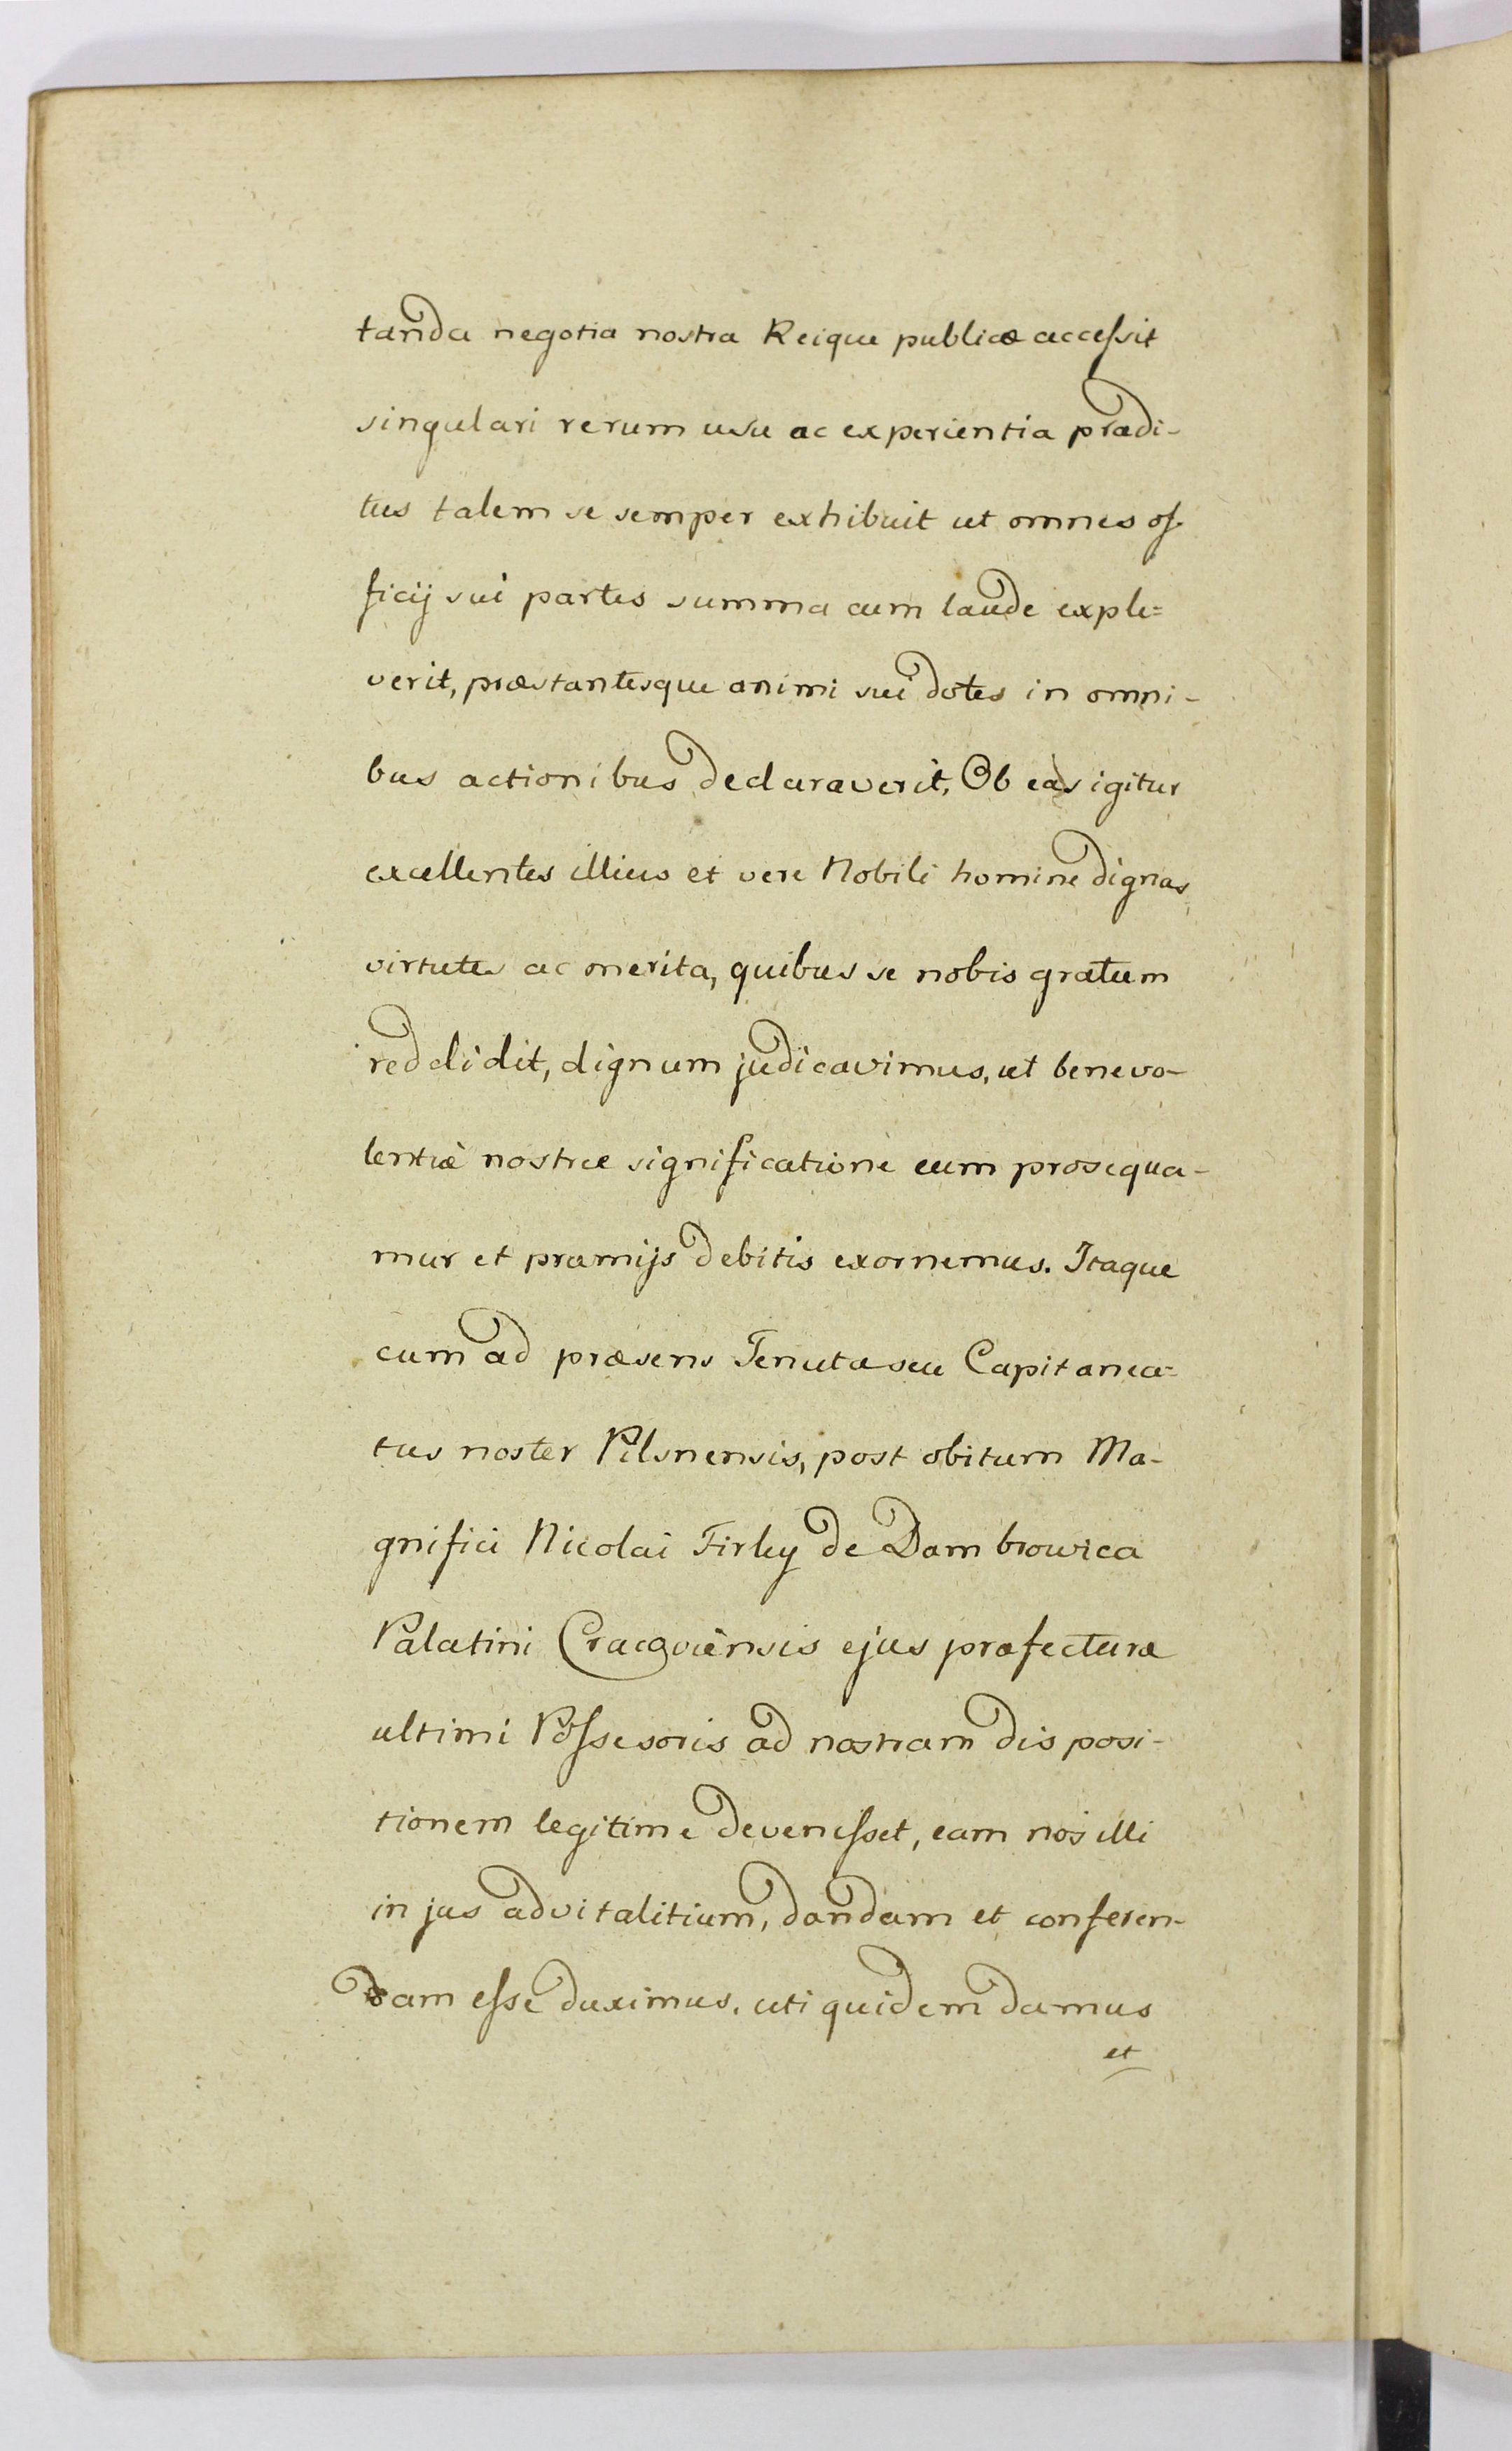 tanda negotia nostra Reique publicæ accessit
singulari rerum usu ac experientia prædi-
tus talem se semper exhibuit ut omnes of-
ficij sui partes summa cum laude exple=
verit, præstantesque animi sui dotes in omni-
bus actionibus declaraverit, Ob eas igitur
excellentes illius et vere Nobili homine dignas
virtutes ac merita, quibus se nobis gratum
reddidit, dignum judicavimus, ut benevo-
lentiæ nostræ significatione eum prosequa-
mur et præmijs debitis exornemus. Itaque
cum ad præsens Tenuta seu Capitanea=
tus noster Pilsnensis, post obitum Ma-
gnifici Nicolai Firley de Dambrowica
Palatini Cracoviensis ejus præfecturæ
ultimi Possesoris ad nostram disposi-
tionem legitime devenisset, eam nos illi
in jus advitalitium, dandam et conferen-
dam esse duximus, uti quidem damus
et